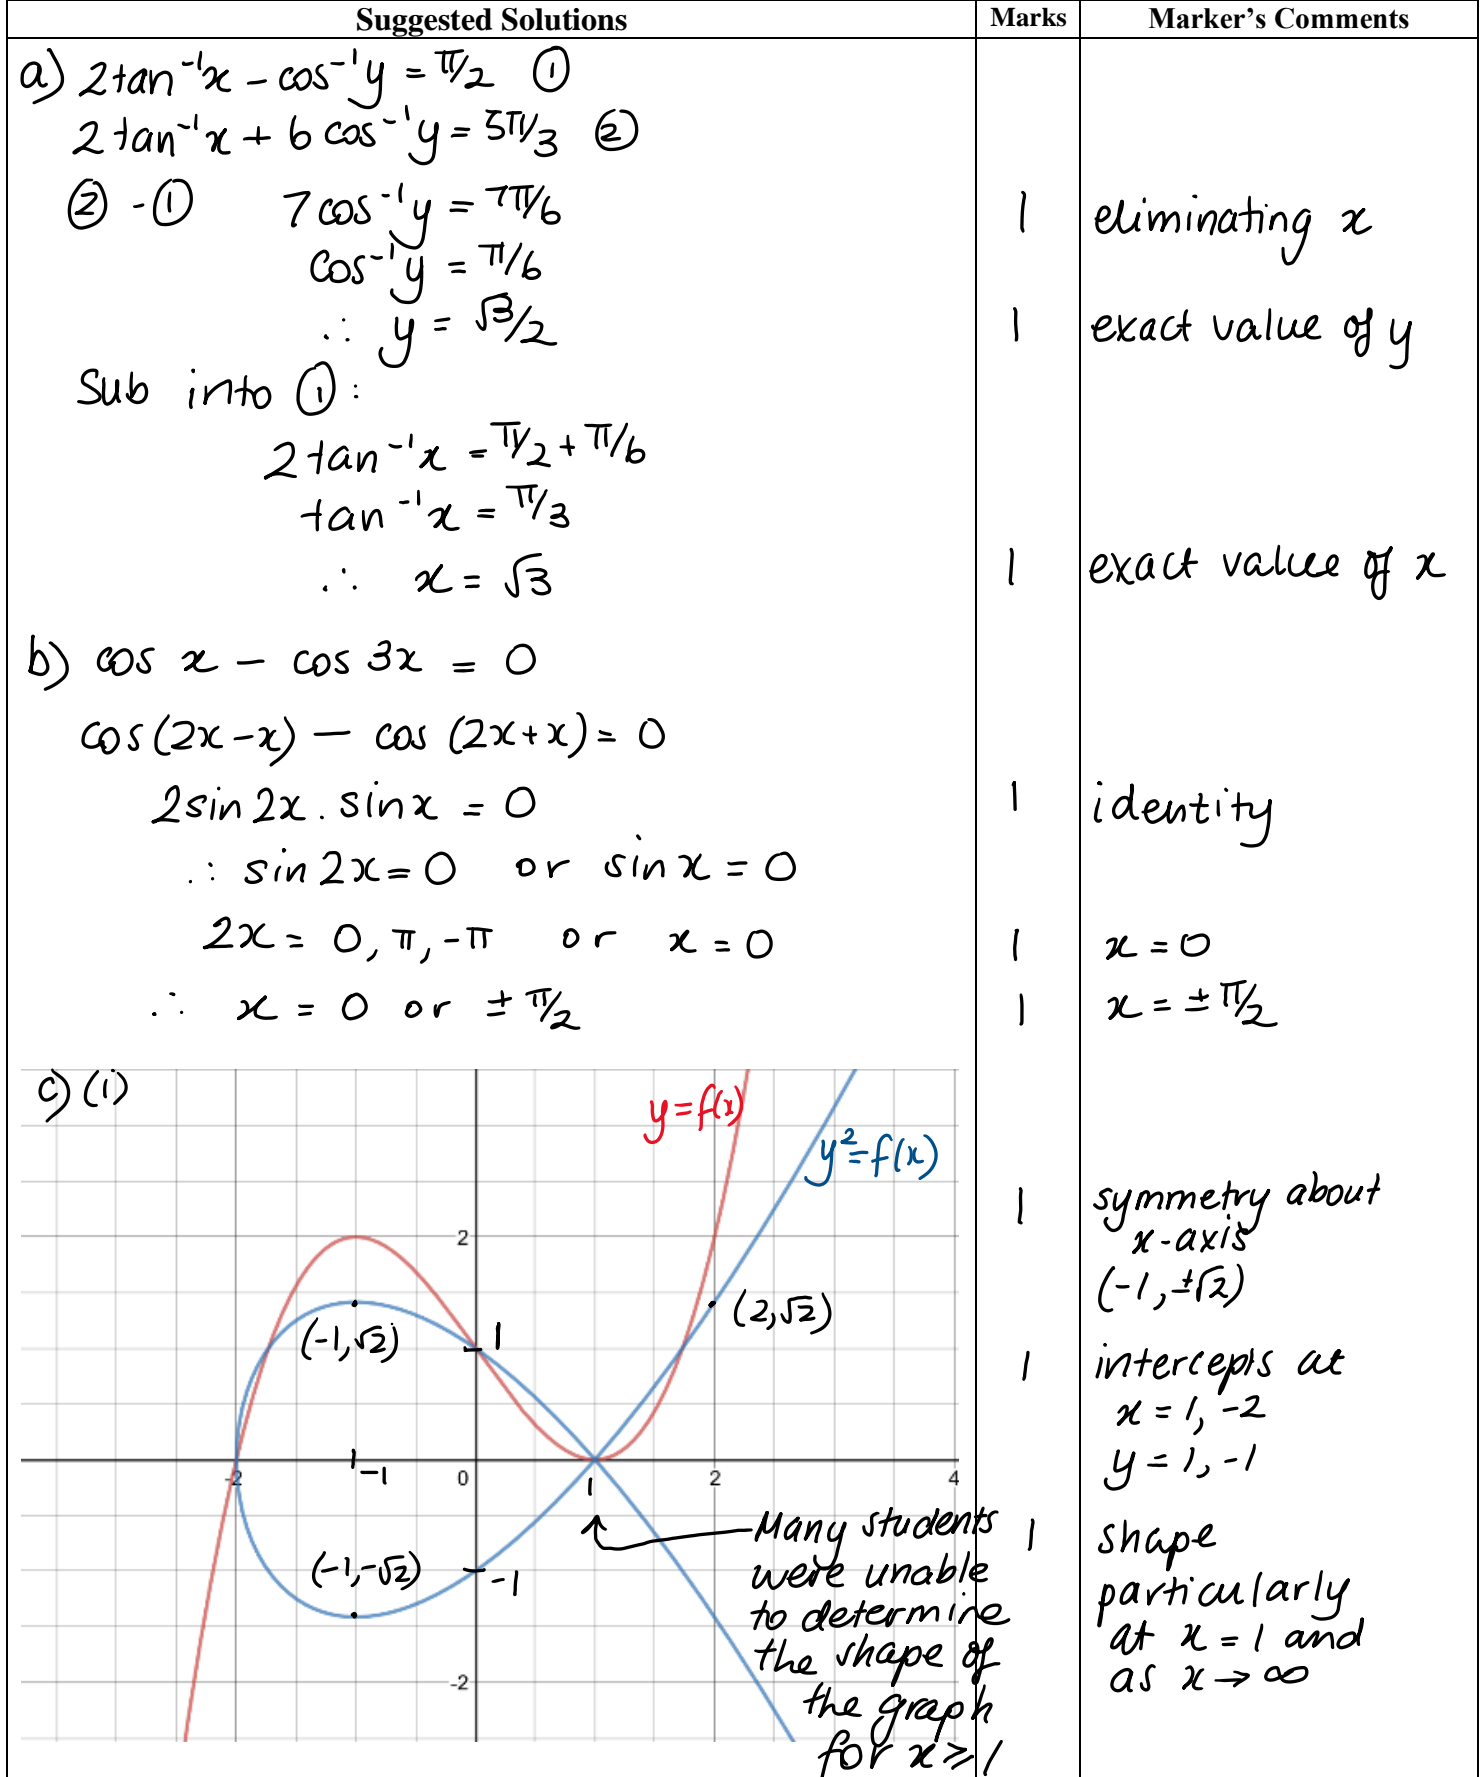 Suggested Solutions Marks Marker's Comments
a) 2tan⁻¹x − cos⁻¹y = π/2 ①
2tan⁻¹x + 6cos⁻¹y = 5π/3 ②
② - ① 7cos⁻¹y = 7π/6 1 eliminating x
cos⁻¹y = π/6
∴ y = √3/2 1 exact value of y
Sub into ①:
2tan⁻¹x = π/2 + π/6
tan⁻¹x = π/3
∴ x = √3 1 exact value of x
b) cos x − cos 3x = 0
cos(2x−x) − cos(2x+x) = 0
2sin2x . sinx = 0 1 identity
∴ sin2x = 0 or sinx = 0
2x = 0, π, −π or x = 0 1 x = 0
∴ x = 0 or ± π/2 1 x = ± π/2
c) (i)
y = f(x)
y² = f(x)
1 symmetry about
x-axis
(-1, ±√2)
2
(-1, √2)
(2, √2)
1
1 intercepts at
x = 1, -2
y = 1, -1
-2 -1 0 1 2 4
(-1, -√2)
-1
-2
Many students
were unable
to determine
the shape of
the graph
for x ⩾ 1
1 shape
particularly
at x = 1 and
as x → ∞